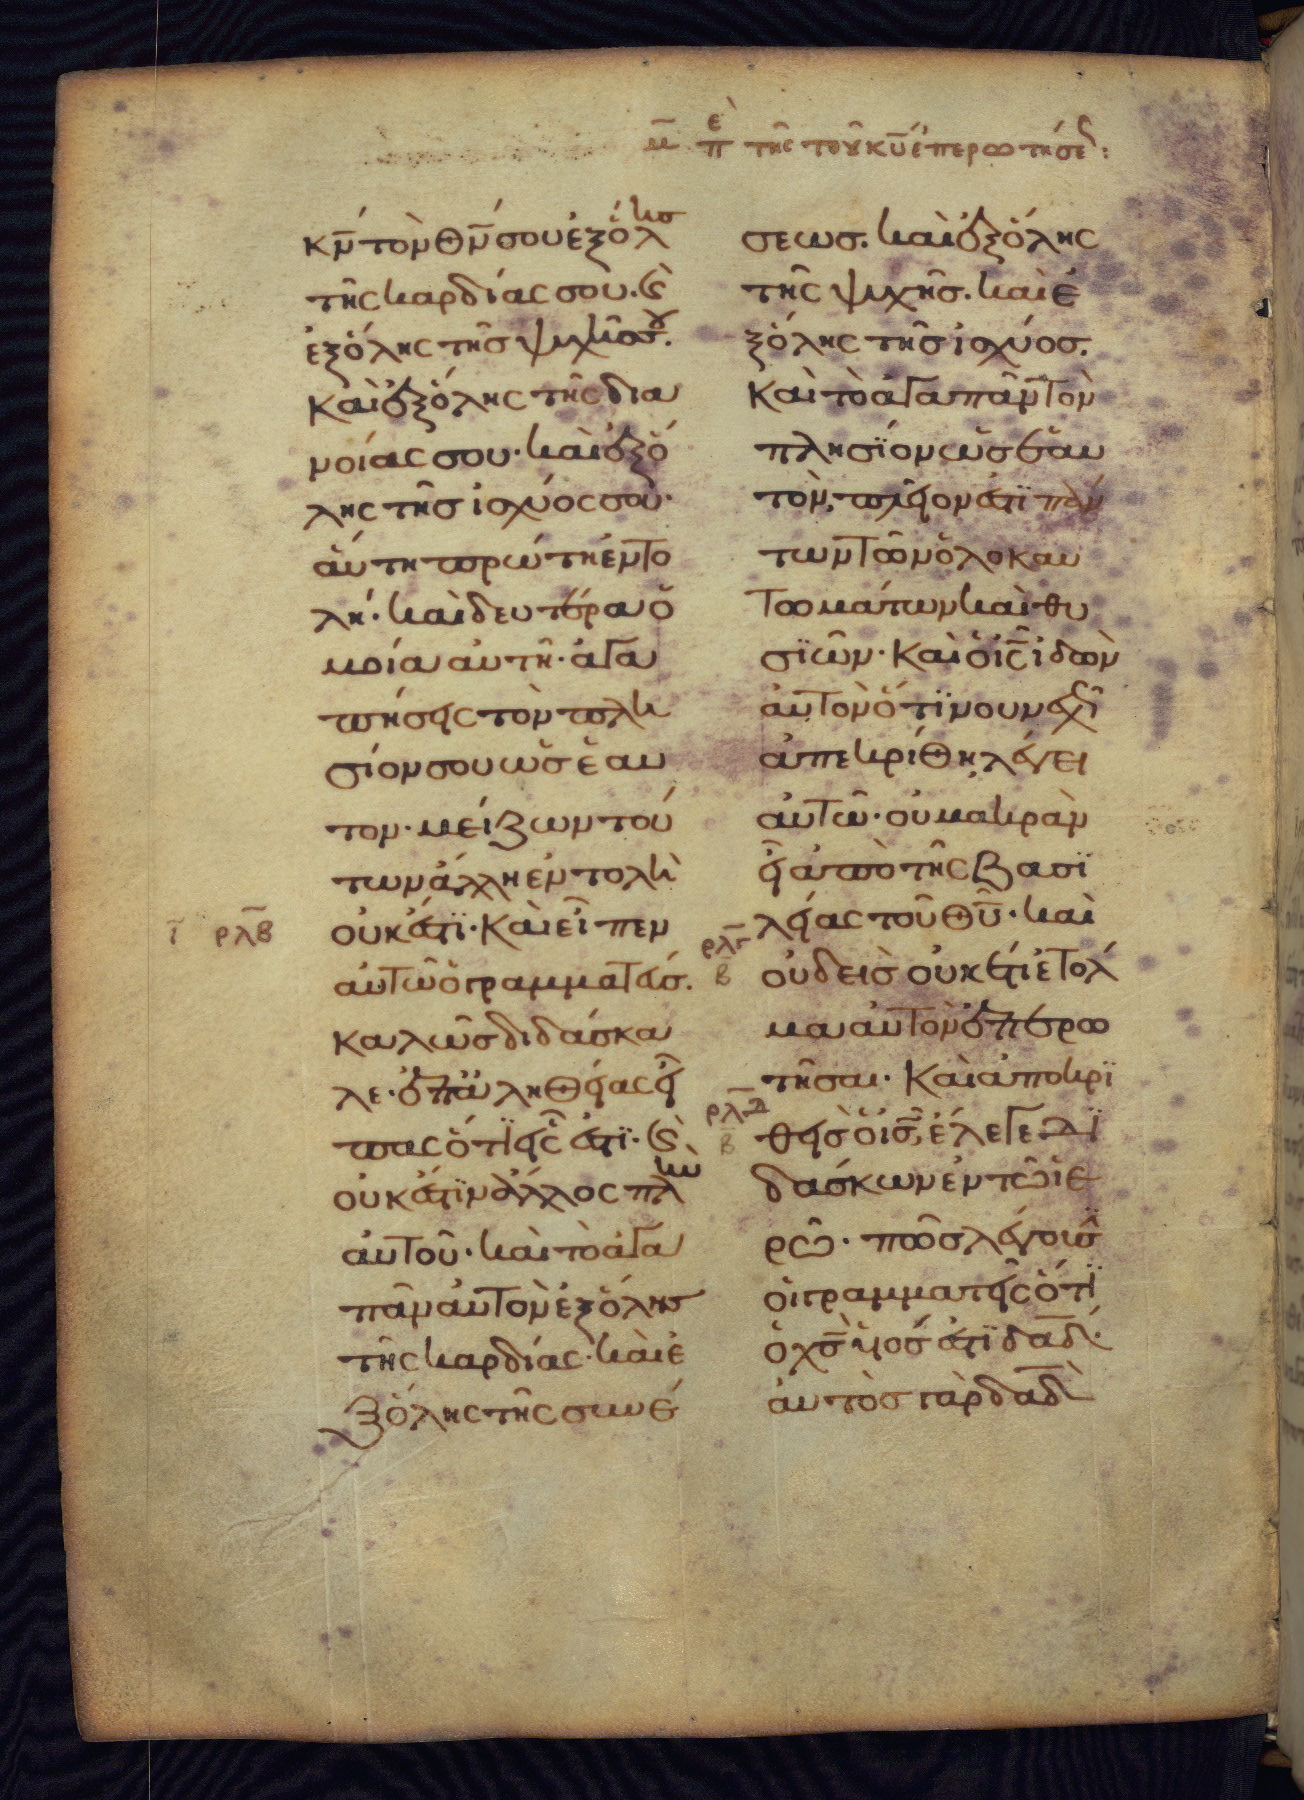 μ̅ πὲ τῆς τοῦ κ̅υ̅ ἐπερωτήσε:
κ̅ν̅ τὸν θ̅ν̅ σου ἐξ ὅλησ
τῆς καρδίας σου. κ̀
ἐξ ὅλης τῆσ ψυχῆσ σου.
Καὶ ἐξ ὅλης τῆς δια
νοίας σου· καὶ ἐξ ὅ
λης τῆσ ἰσχύος σου·
ἅυτη πρώτη ἐντο
λή· καὶ δευτέρα ὁ
μοία αυτῆ· ἀγα
πήσεις τὸν πλη
σίον σου ὡσ ἑαυ
τον· μείζων τού
των ἄλλη ἐντολὴ
ουκ έστϊ· Καὶ εῖπεν
ι̅ ρλ̅β
αυτῶ ὁ γραμματεύσ.
καλῶσ διδάσκα
λε· ἐπ ἀληθείας εἶ
πας ὅτϊ εἷς ἐστϊ· κ̀
ουκ έστϊν ἄλλος πλὴν
αυτοῦ· καὶ τὸ ἀγα
πᾶν αυτὸν ἐξ ὅλησ
τῆς καρδίας· καὶ ἐ
ξ ὅλης τῆς συνέ
σεωσ. καὶ ἐξ ὅλης
τῆς ψυχῆσ. καὶ ἐ
ξ ὅλης τῆσ ἰσχύοσ.
Καὶ τὸ ἀγαπᾶν τὸν
πλησϊον ὡσ ἑαυ
τὸν, πλεῖον ἐστϊ πάν
των τῶν ὁλοκαυ
τωμάτων καὶ θυ
σϊῶν· Καὶ ὁ ι̅ς̅ ἰδὼν
αυτὸν ὅτϊ νουνεχῶσ
ἀπεκρίθη λέγει
αυτῶ· ου μακρὰν
εἶ ἀπὸ τῆς βασϊ
λείας τοῦ θ̅υ̅· καὶ
ρλ̅γ β
ουδεισ ουκέτι ετόλ
μα αυτὸν ἐπερω
τῆσαι. Καὶ ἀποκρϊ
ρλ̅δ β
θεὶσ ὁ ι̅σ̅, ἔλεγε δϊ
δάσκων ἐν τῶ ἱε
ρῶ· πῶσ λέγουσϊ
οἱ γραμματεῖς ὅτϊ
ὁ χ̅σ̅ υἱόσ ἐστϊ δα̅δ·
ἀυτὸσ γὰρ δα̅δ